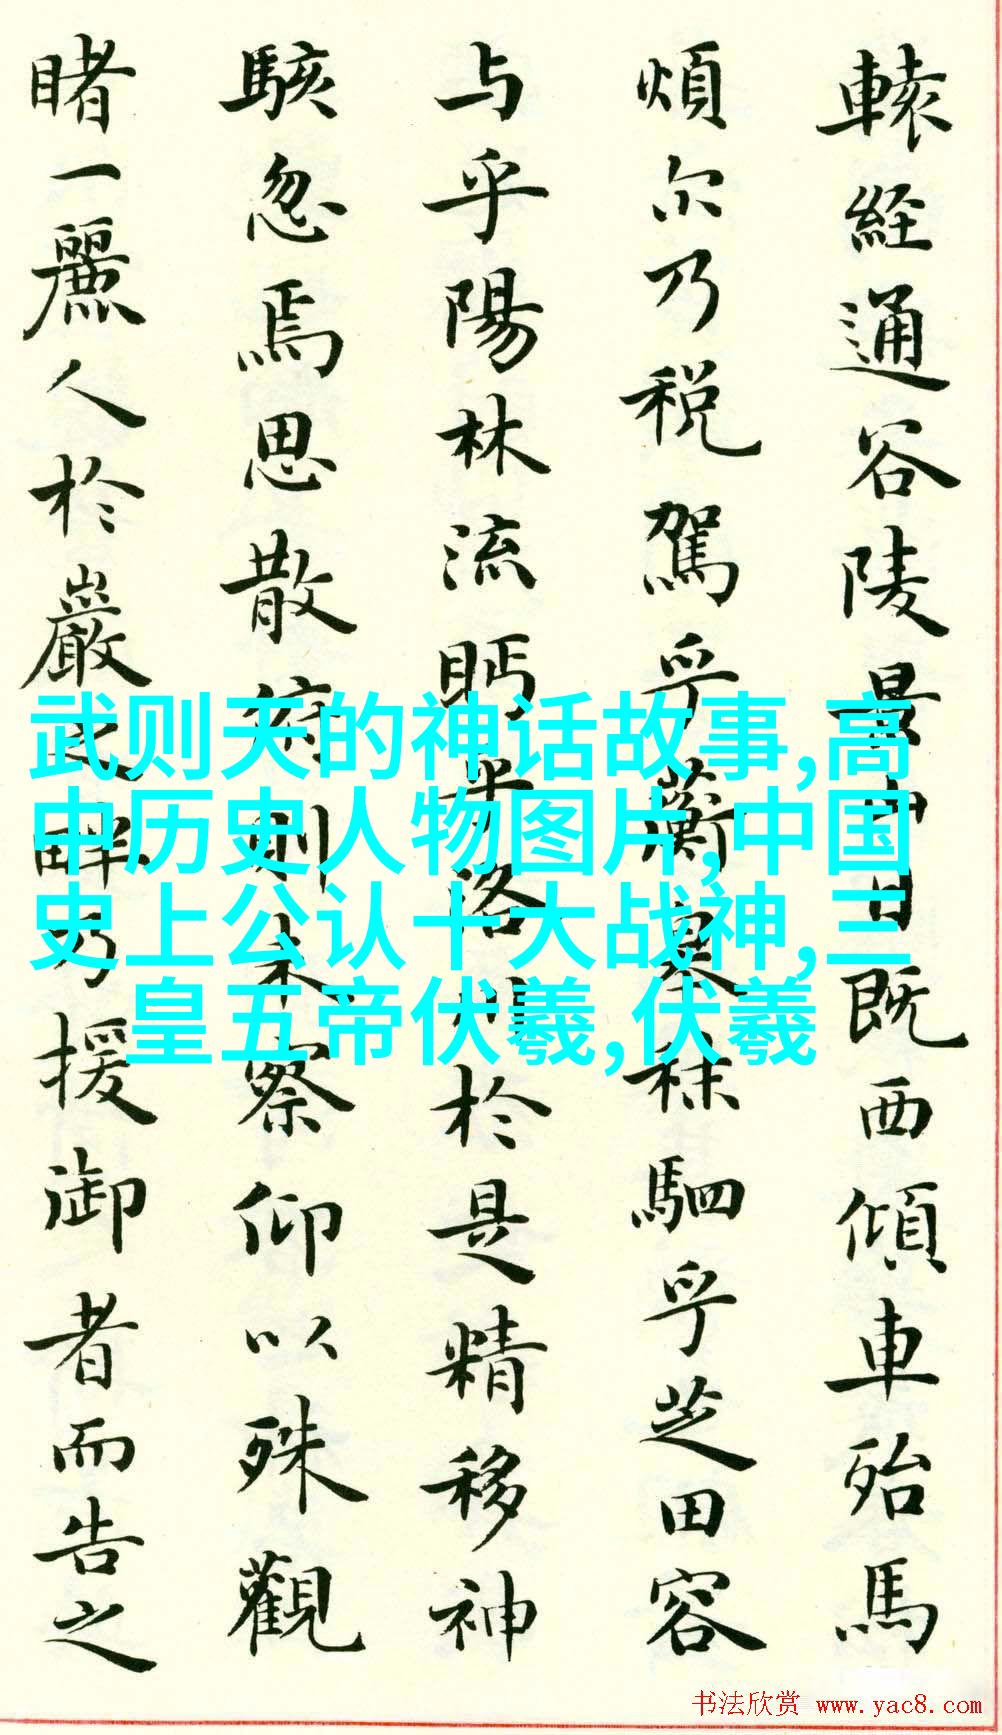 轅経通谷陵景山日既西傾車殆馬
煩尔乃税駕乎蘅皋秣駟乎芝田容
与乎陽林流眄乎洛川於是精移神
駭忽焉思散俯則未察仰以殊觀
睹一麗人於巖之畔乃援御者而告之
武则天的神话故事,高
中历史人物图片,中国
史上公认十大战神,三
皇五帝伏羲,伏羲
书法欣赏 www.yac8.com